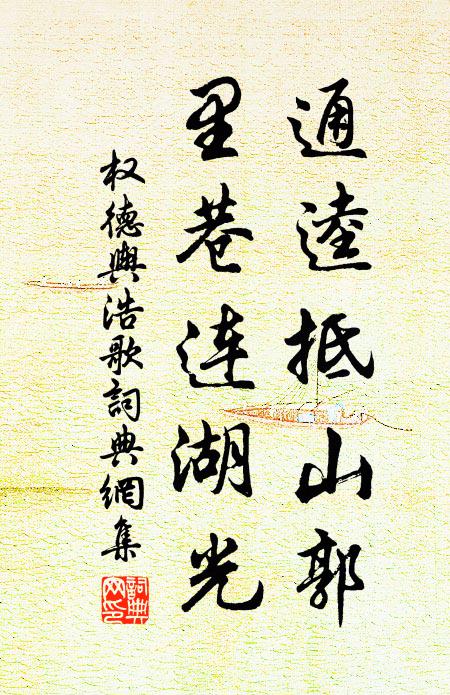 通逵抵山郭
里巷连湖光
权德舆浩歌詞典網集
詞典网印